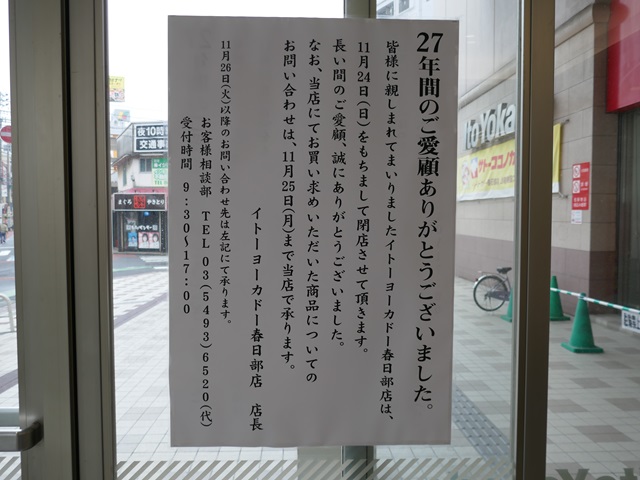 27年間のご愛顧ありがとうございました。
皆様に親しまれてまいりましたイトーヨーカドー春日部店は、
11月24日(日)をもちまして閉店させて頂きます。
長い間のご愛顧、誠にありがとうございました。
なお、当店にてお買い求めいただいた商品についての
お問い合わせは、11月25日(月)まで当店で承ります。
イトーヨーカドー春日部店 店長
11月26日(火)以降のお問い合わせ先は左記にて承ります。
お客様相談部 TEL 03(5493)6520(代)
受付時間 9:30~17:00
夜10時
交通事